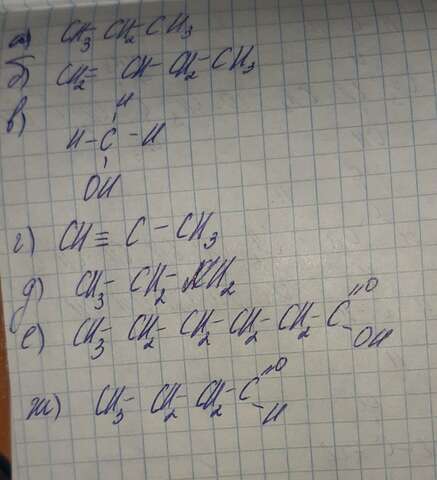 а) CH₃-CH₂-CH₃
б) CH₂= CH-CH₂-CH₃
в) H
H-C-H
OH
г) CH≡C-CH₃
д) CH₃-CH₂-NH₂
е) CH₃-CH₂-CH₂-CH₂-CH₂-C=O
-OH
ж) CH₃-CH₂-CH₂-C=O
-H